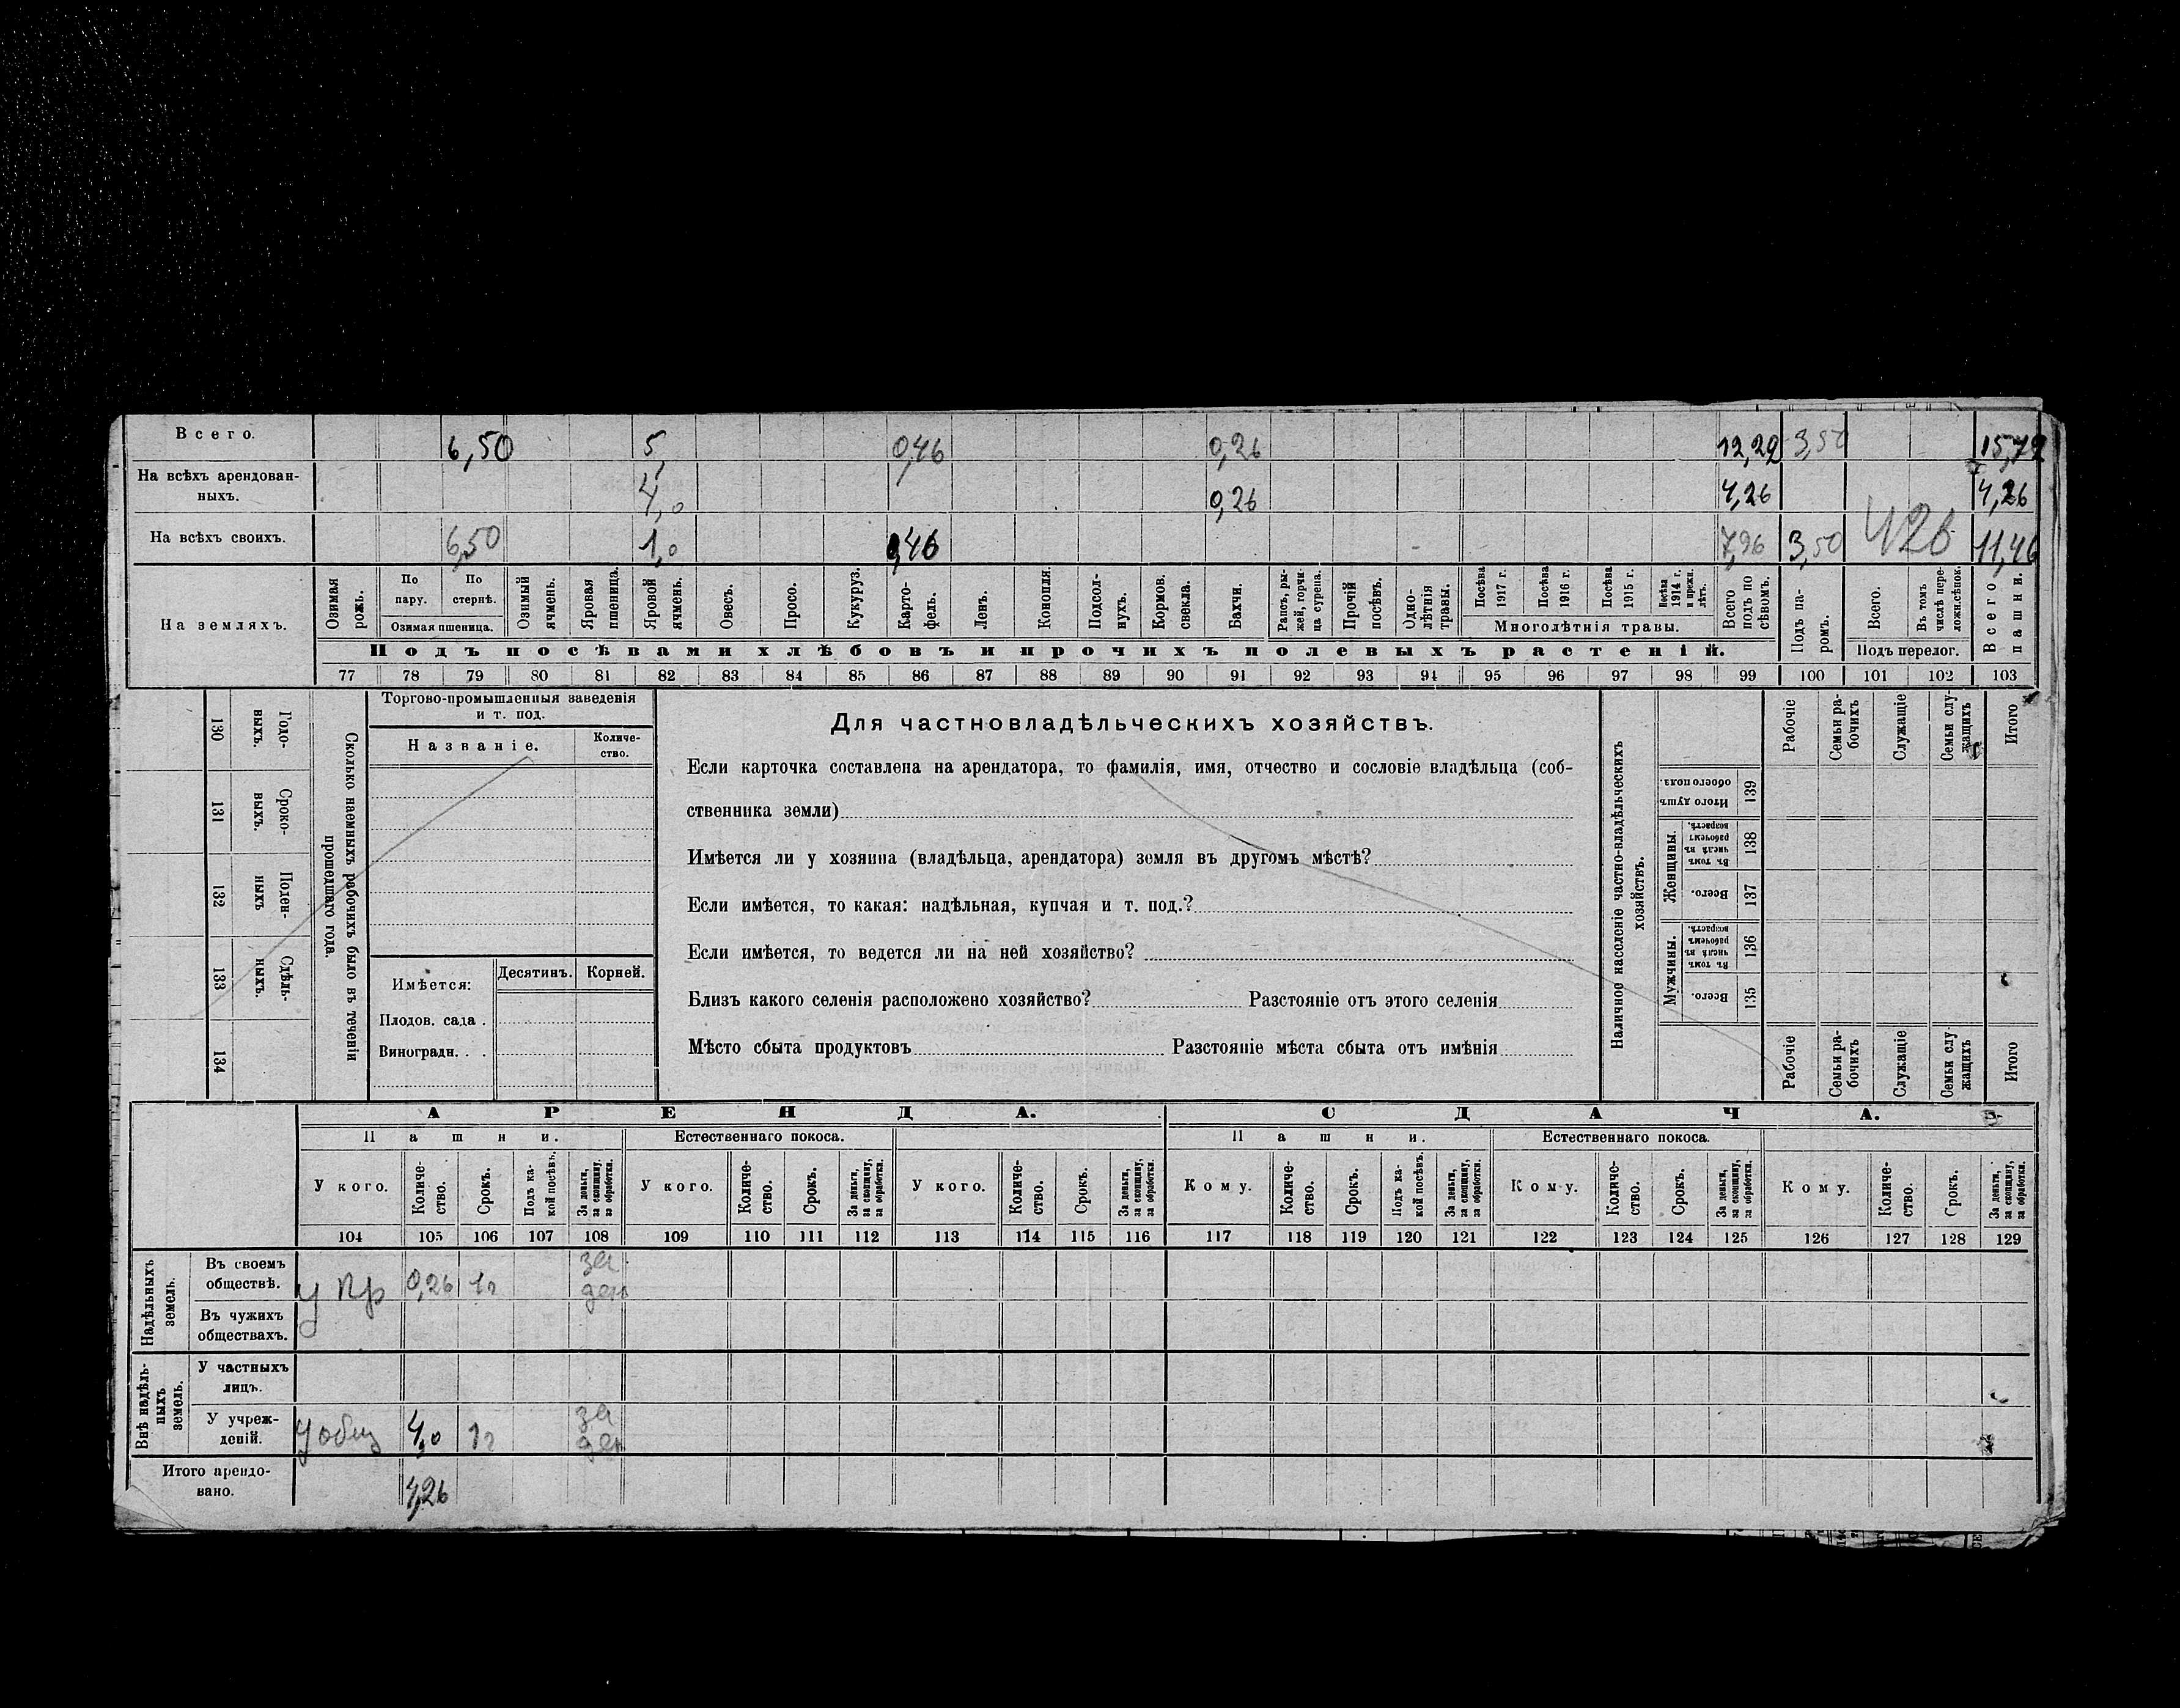 Всего. 6,50 5, 0,46 0,26 12,22 3,50 15,72
На всѣхъ арендован-
ныхъ. 4,0 0,26 4,26 4,26
На всѣхъ своихъ. 6,50 1,0 0,46 7,96 3,50 426 11,46
На земляхъ.
Озимая
рожь.
По
пару.
По
стернѣ.
Озимая пшеница.
Озимый
ячмень.
Яровая
пшеница.
Яровой
ячмень.
Овесъ.
Просо.
Кукуруз.
Карто-
фель.
Ленъ.
Конопля.
Подсол-
нухъ.
Кормов.
свекла.
Бахчи.
Рапсъ, ры-
жей, горчи-
ца сурепа.
Прочій
посѣвъ.
Одно-
лѣтнія
травы.
Посѣва
1917 г.
Посѣва
1916 г.
Посѣва
1915 г.
Посѣва
1914 г.
и прежн.
лѣтъ.
Многолѣтнія травы.
Всего
подъ по
сѣвомъ.
Подъ па-
ромъ.
Всего.
Въ томъ
числѣ пере-
ложн.сѣнок.
Подъ перелог.
Всего
пашни.
Подъ посѣвами хлѣбовъ и прочихъ полевыхъ растеній.
77 78 79 80 81 82 83 84 85 86 87 88 89 90 91 92 93 94 95 96 97 98 99 100 101 102 103
130 Годо-
выхъ.
131 Сроко-
выхъ.
132 Поден-
ныхъ
133 Сдѣль-
ныхъ.
134
Сколько наемныхъ рабочихъ было въ теченіи
прошедшаго года.
Торгово-промышленныя заведенія
и т. под.
Названіе.
Количе-
ство.
Имѣется:
Десятинъ. Корней.
Плодов. сада .
Виноградн. . .
Для частновладѣльческихъ хозяйствъ.
Если карточка составлена на арендатора, то фамилія, имя, отчество и сословіе владѣльца (соб-
ственника земли)
Имѣется ли у хозяина (владѣльца, арендатора) земля въ другомъ мѣстѣ?
Если имѣется, то какая: надѣльная, купчая и т. под.?
Если имѣется, то ведется ли на ней хозяйство?
Близъ какого селенія расположено хозяйство? Разстояніе отъ этого селенія
Мѣсто сбыта продуктовъ Разстояніе мѣста сбыта отъ имѣнія
Наличное населеніе частно-владѣльческихъ
хозяйствъ.
Рабочіе
Семьи ра-
бочихъ
Служащіе
Семьи слу-
жащихъ
Итого
Итого душ
обоего пола.
139
Женщины.
Въ томъ
числѣ въ
рабочемъ
возрастѣ.
138
Всего.
137
Мужчины.
Въ томъ
числѣ въ
рабочемъ
возрастѣ.
136
Всего.
135
Рабочіе
Семьи ра-
бочихъ
Служащіе
Семьи слу
жащихъ
Итого
АРЕНДА. СДАЧА.
Пашни. Естественнаго покоса. Пашни. Естественнаго покоса.
У кого.
Количе-
ство.
Срокъ.
Подъ ка-
кой посѣвъ.
За деньги,
за скопщину,
за обработки.
У кого.
Количе-
ство.
Срокъ.
За деньги,
за скопщину,
за обработки.
У кого.
Количе-
ство.
Срокъ.
За деньги,
за скопщину,
за обработки.
Кому.
Количе-
ство.
Срокъ.
Подъ ка-
кой посѣвъ.
За деньги,
за скопщину,
за обработки.
Кому.
Количе-
ство.
Срокъ.
За деньги,
за скопщину,
за обработки.
Кому.
Количе-
ство.
Срокъ.
За деньги,
за скопщину,
за обработки.
104 105 106 107 108 109 110 111 112 113 114 115 116 117 118 119 120 121 122 123 124 125 126 127 128 129
Надѣльныхъ
земель.
Въ своемъ
обществѣ. у кр 0,26 1г за
ден
Въ чужихъ
обществахъ.
Внѣ надѣль-
ныхъ
земель.
У частныхъ
лицъ.
У учреж-
деній. У общ 4,0 1г за
ден
Итого арендо-
вано. 4,26